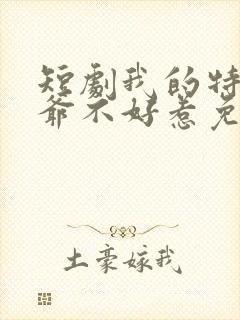 短劇我的特
爺不好惹免
土豪嫁我